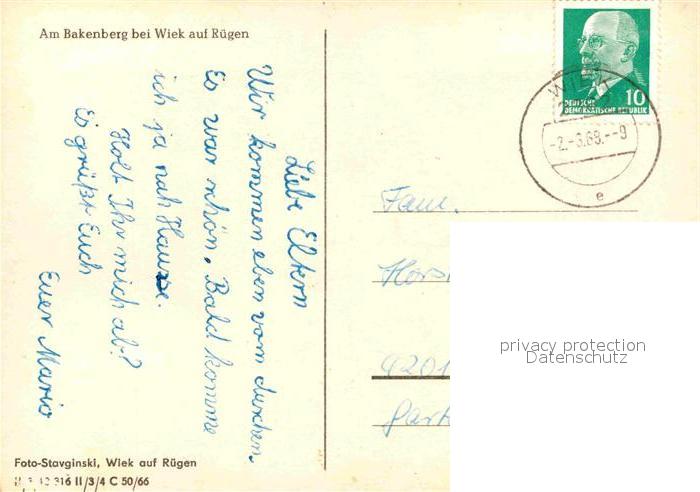 Am Bakenberg bei Wiek auf Rügen
Liebe Eltern
Wir kommen eben vom duschen.
Es war schön. Bald komme
ich ja nah Hause.
Holt Ihr mich ab?
Es grüßt Euch
Euer Mario
Foto-Stavginski, Wiek auf Rügen
316 II/3/4 C 50/66
10
DEUTSCHE
DEMOKRATISCHE REPUBLIK
WIEK
-2.-3.69.--9
e
Fam.
Horst
4201
Gart
privacy protection
Datenschutz